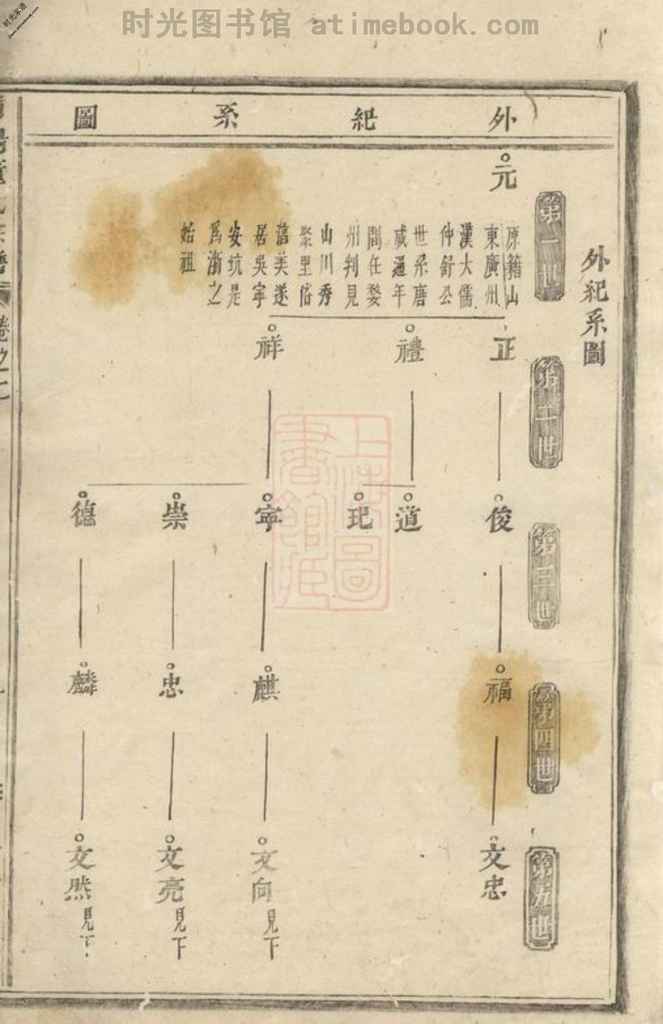 时光图书馆 atimebook.com
时光图书馆
外紀系圖
外紀系圖
第一世
元
原籍山
東廣州
漢大儒
仲舒公
世系唐
咸通年
間任婺
州判見
山川秀
聚里俗
淳美遂
居吳寧
安坑是
爲浙之
始祖
第二世
正
禮
祥
第三世
俊
道
玘
寧
崇
德
第四世
福
麒
忠
麟
第五世
文忠
文向見下
文亮見下
文然見下
卷之
上海圖書館藏